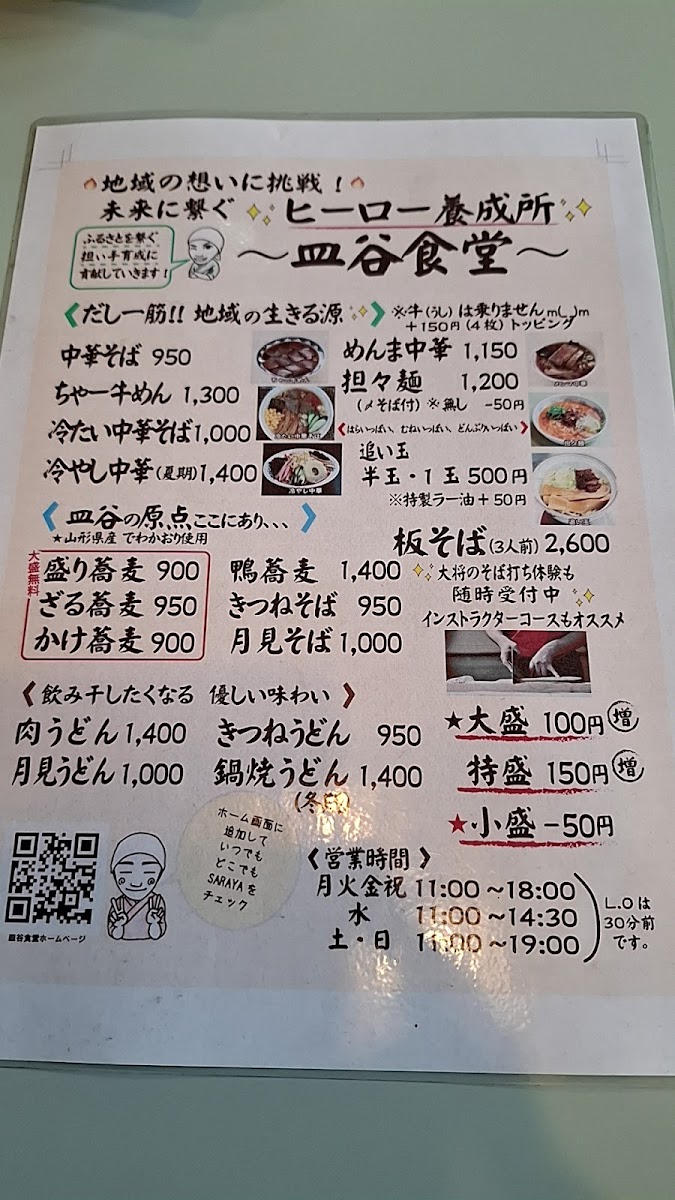 地域の想いに挑戦！
未来に繋ぐ ヒーロー養成所
ふるさとを繋ぐ
担い手育成に
貢献していきます！
～皿谷食堂～
《だし一筋!! 地域の生きる源》
※牛(うし)は乗りませんm(_)m
+150円(4枚)トッピング
中華そば 950
ちゃー牛めん 1,300
冷たい中華そば 1,000
冷やし中華(夏期) 1,400
めんま中華 1,150
担々麺 1,200
(〆そば付) ※無し -50円
《はらいっぱい、むねいっぱい、どんぶりいっぱい》
追い玉
半玉・1玉 500円
※特製ラー油+50円
ちゃー牛めん
冷たい中華そば
冷やし中華
メンマ中華
担々麺
追い玉
《皿谷の原点ここにあり、、、》
★山形県産 でわかおり使用
大盛無料
盛り蕎麦 900
ざる蕎麦 950
かけ蕎麦 900
鴨蕎麦 1,400
きつねそば 950
月見そば 1,000
板そば(3人前) 2,600
大将のそば打ち体験も
随時受付中
インストラクターコースもオススメ
《飲み干したくなる 優しい味わい》
肉うどん 1,400
月見うどん 1,000
きつねうどん 950
鍋焼うどん 1,400
★大盛 100円増
特盛 150円増
★小盛 -50円
ホーム画面に
追加して
いつでも
どこでも
SARAYAを
チェック
皿谷食堂ホームページ
《営業時間》
月火金祝 11:00～18:00
水 11:00～14:30
土・日 11:00～19:00
L.Oは
30分前
です。